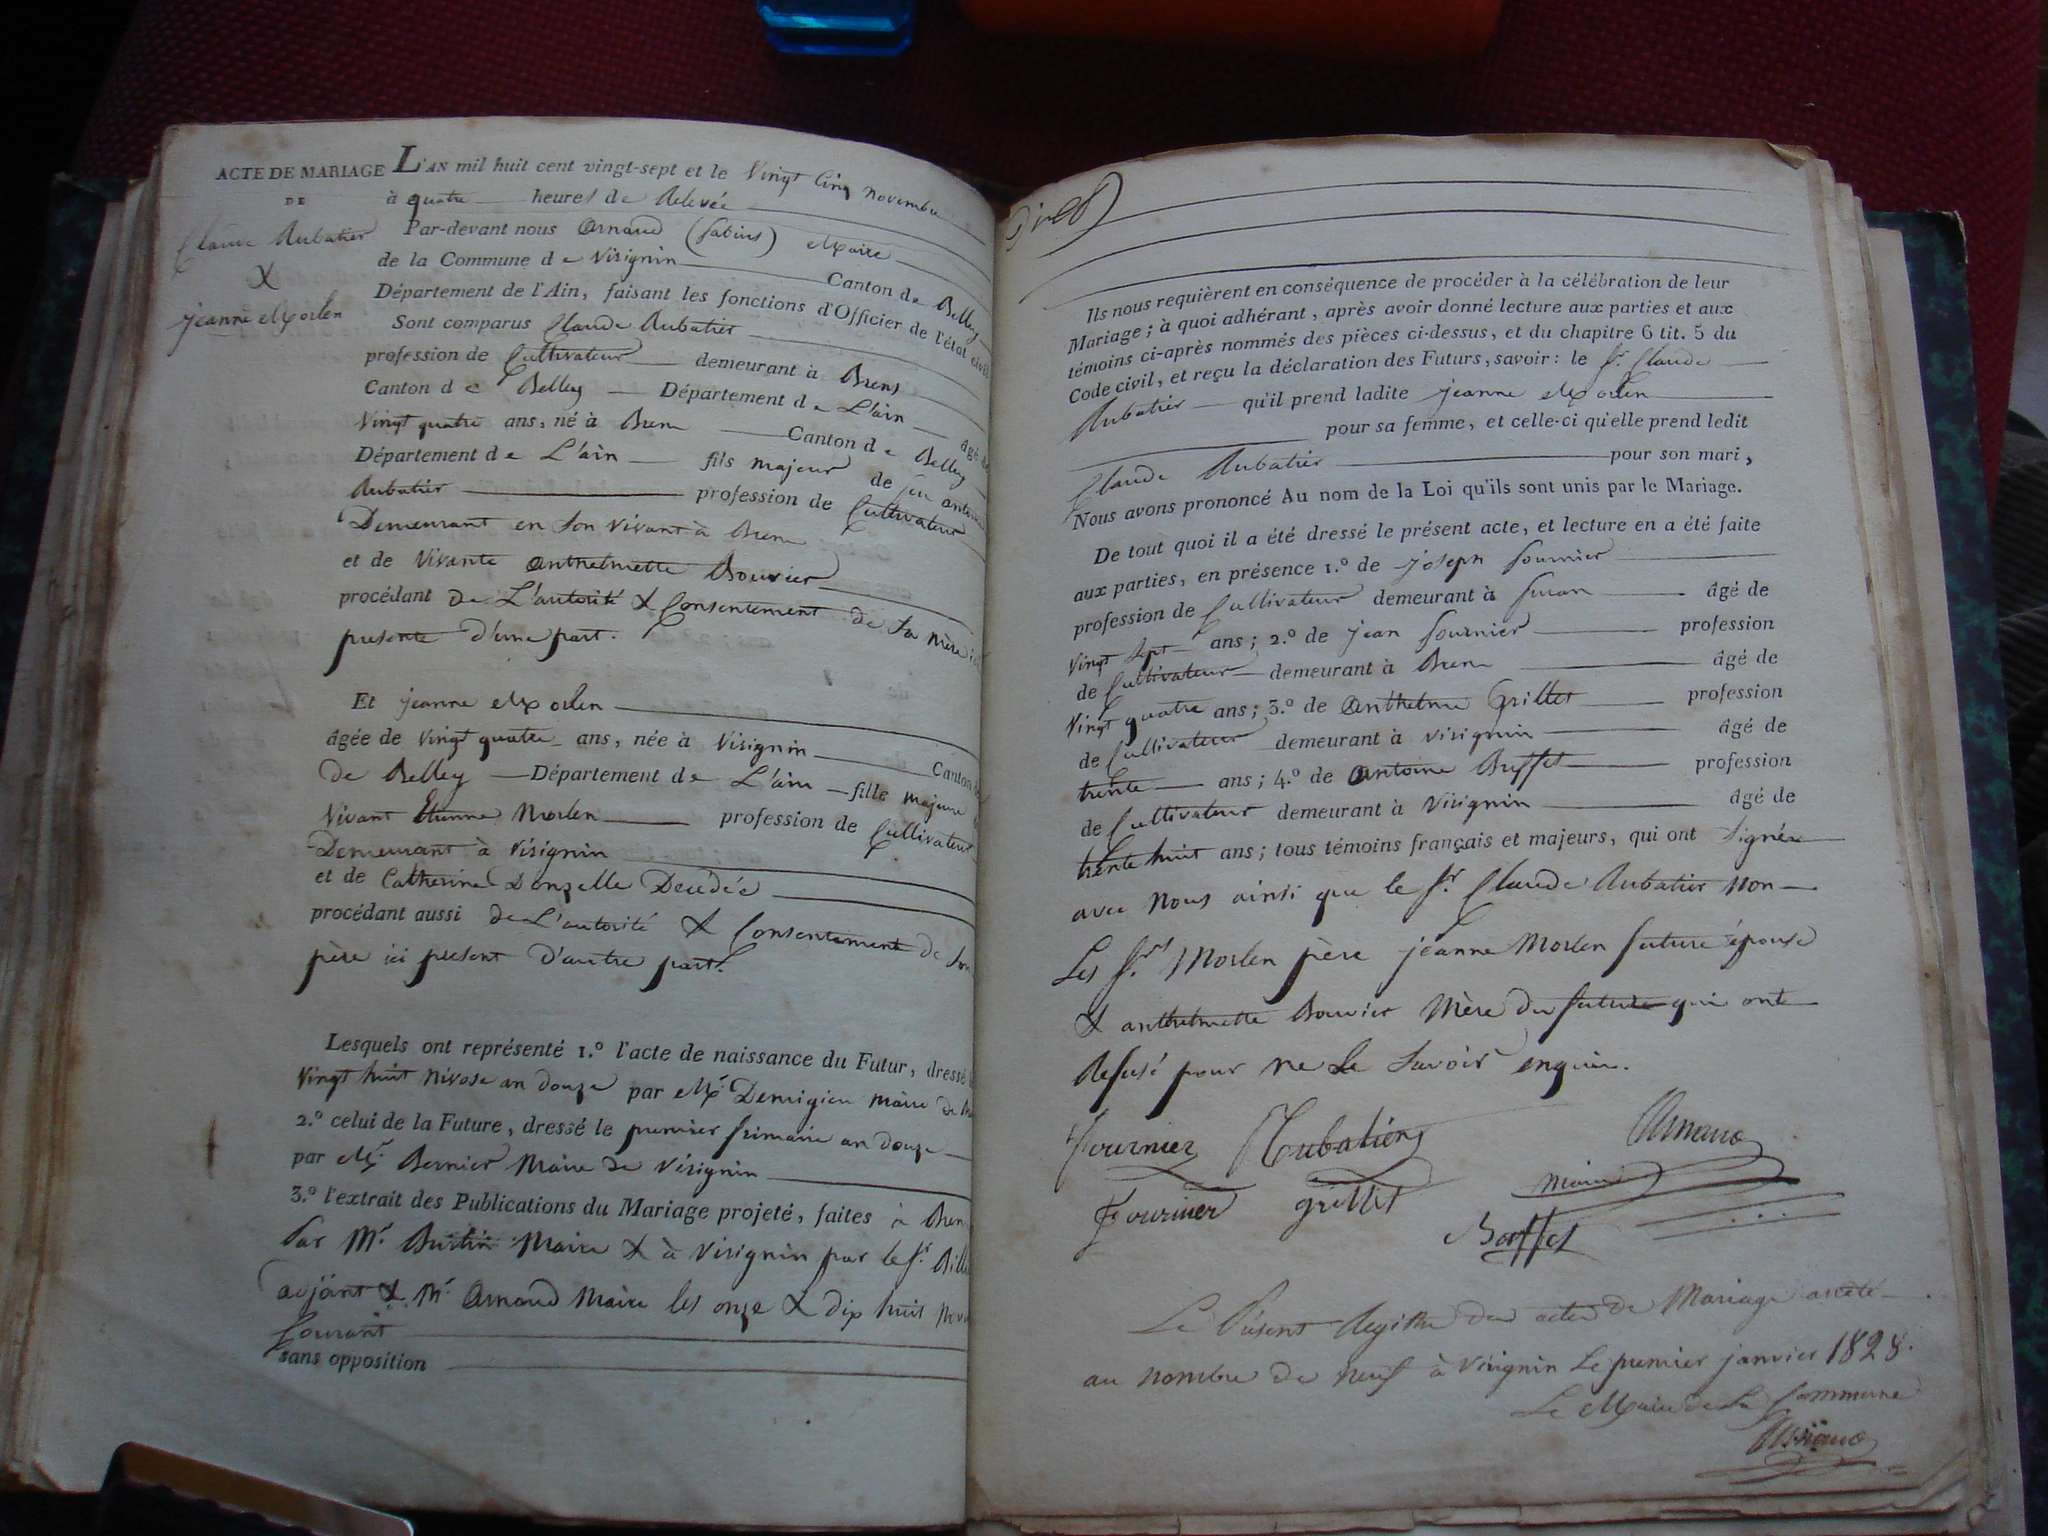 ACTE DE MARIAGE
DE
Claude Aubatier
&
jeanne Morlen
L'AN mil huit cent vingt-sept et le Vingt Cinq novembre
à quatre heures de Relevée
Par-devant nous Arnaud (Sabins) Maire
de la Commune de Virignin Canton de Belley
Département de l'Ain, faisant les fonctions d'Officier de l'état civil
Sont comparus Claude Aubatier
profession de Cultivateur demeurant à Brens
Canton de Belley Département de L'ain âgé de
Vingt quatre ans, né à Brens Canton de Belley
Département de L'ain fils majeur de feu antoine
Aubatier profession de Cultivateur
Demeurant en Son Vivant à Brens
et de Vivante Anthelmette Bouvier
procédant de L'autorité & Consentement de Sa Mère ici
presente d'une part.
Et jeanne Morlen
âgée de Vingt quatre ans, née à Virignin Canton
de Belley Département de L'ain fille majeure
Vivant Etienne Morlen profession de Cultivateur
Demeurant à Virignin
et de Catherine Donzelle Decédée
procédant aussi de L'autorité & Consentement de Son
père ici present d'autre part.
Lesquels ont représenté 1.º l'acte de naissance du Futur, dressé
Vingt huit Nivose an douze par Mr Demigieu Maire de
2.º celui de la Future, dressé le premier frimaire an douze
par Mr Bernier Maire de Virignin
3.º l'extrait des Publications du Mariage projeté, faites à Brens
Par Mr Maire & à Virignin par le Sr
adjoint & Mr Arnaud Maire les onze & dix huit
Courant
sans opposition
Ils nous requièrent en conséquence de procéder à la célébration de leur
Mariage; à quoi adhérant, après avoir donné lecture aux parties et aux
témoins ci-après nommés des pièces ci-dessus, et du chapitre 6 tit. 5 du
Code civil, et reçu la déclaration des Futurs, savoir: le Sr Claude
Aubatier qu'il prend ladite jeanne Morlen
pour sa femme, et celle-ci qu'elle prend ledit
Claude Aubatier pour son mari,
Nous avons prononcé Au nom de la Loi qu'ils sont unis par le Mariage.
De tout quoi il a été dressé le présent acte, et lecture en a été faite
aux parties, en présence 1.º de joseph fournier
profession de Cultivateur demeurant à âgé de
Vingt Sept ans; 2.º de jean fournier profession
de Cultivateur demeurant à Brens âgé de
Vingt quatre ans; 3.º de Anthelme Grillet profession
de Cultivateur demeurant à Virignin âgé de
trente ans; 4.º de Antoine Buffet profession
de Cultivateur demeurant à Virignin âgé de
trente huit ans; tous témoins français et majeurs, qui ont Signés
avec Nous ainsi que le Sr Claude Aubatier Non
Les Srs Morlen père jeanne Morlen future épouse
& anthelmette Bouvier Mère du future qui ont
Refusé pour ne Le Savoir enquis.
fournier Aubatier Arnaud
maire
Fournier grillet
Boffet
Le Présent Registre des actes de Mariage arrêté
au nombre de neuf à Virignin Le premier janvier 1828.
Le Maire de La Commune
Arnaud